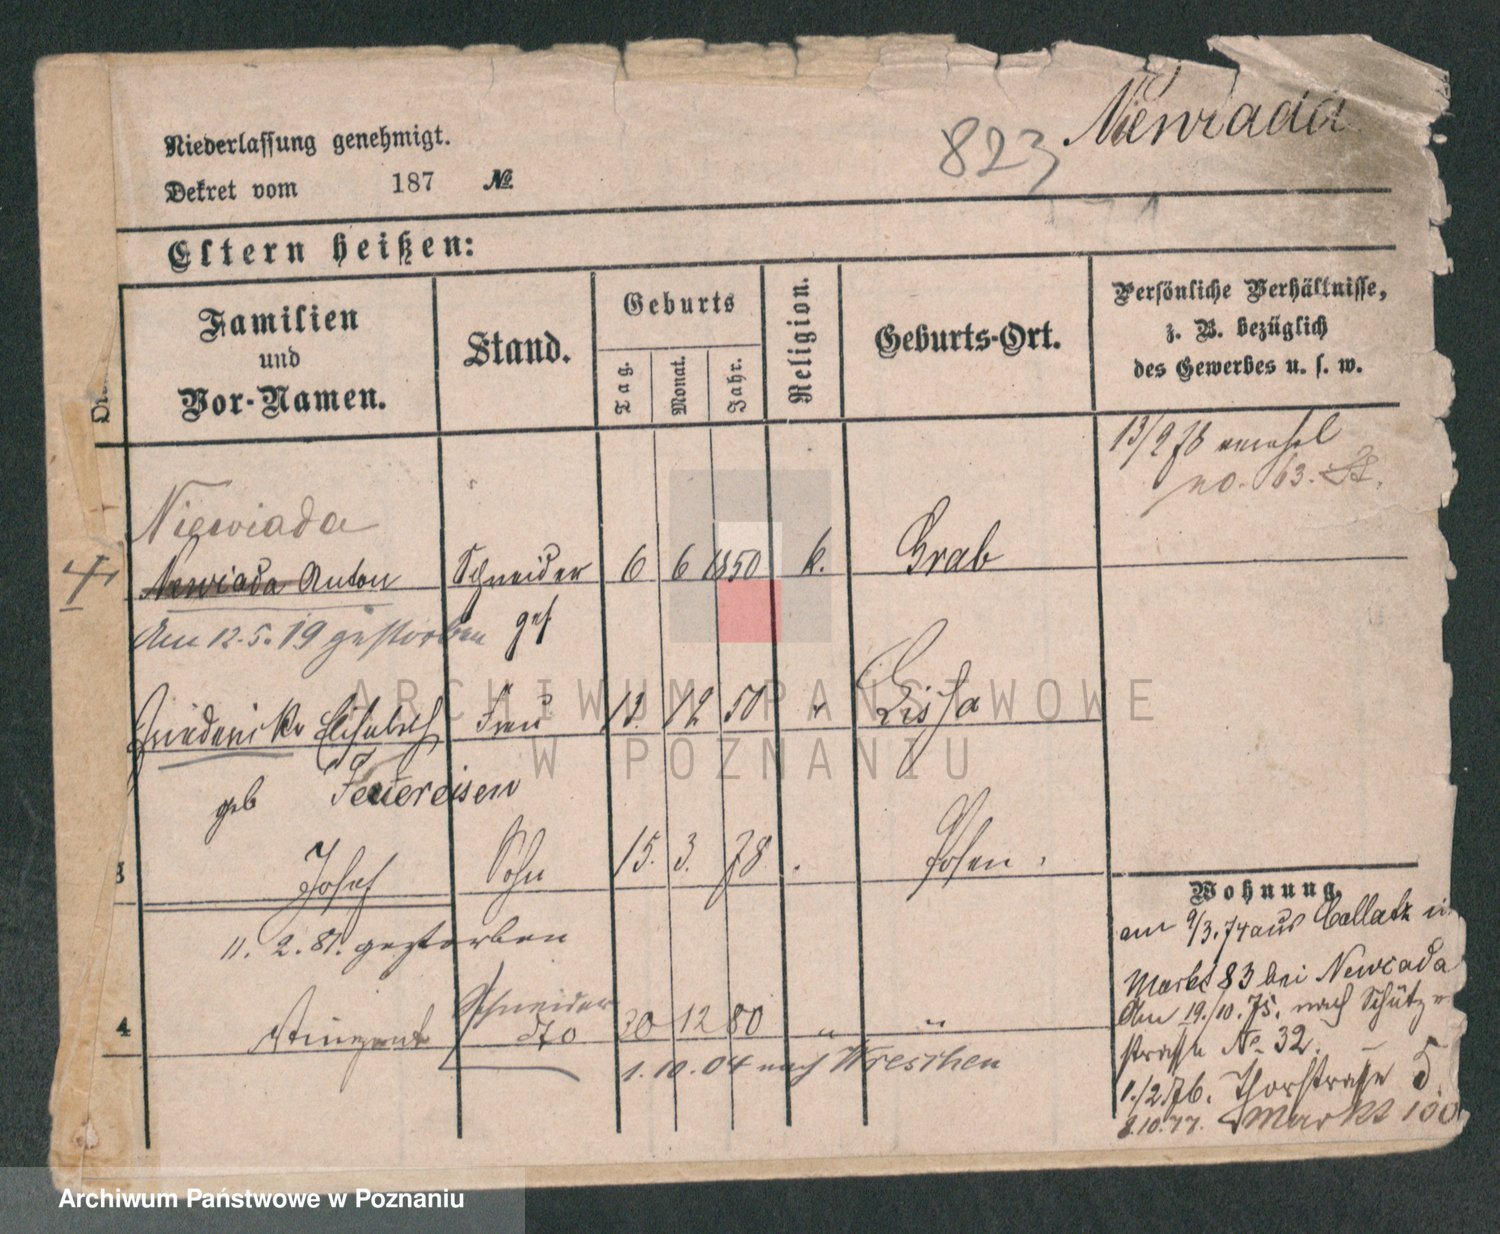 Niewiada
823
Niederlassung genehmigt.
Dekret vom 187 №
Eltern heißen:
Familien und Vor-Namen.
Stand.
Geburts
Tag.
Monat.
Jahr.
Religion.
Geburts-Ort.
Persönliche Verhältnisse,
z. B. bezüglich
des Gewerbes u. s. w.
13/9 78
no. 63.
Niewiada
Newiada Anton Schneider 6 6 1850 k. Grab
Am 12.5.19 gestorben
Friederike Elisabeth Frau 13. 12 50 Lissa
geb Feuereisen
3 Josef Sohn 15. 3. 78 Posen
11. 2. 81. gestorben
Schneider
4 Vinzent do 30 12 80 " "
1.10.04 nach Wreschen
Wohnung.
am 9/3.74 aus
Markt 83 bei Newiada
Am 19./10.75. nach Schütz
strasse No 32.
1./2.76. Thorstrasse 5.
8.10.77. Markt 100
ARCHIWUM PAŃSTWOWE
W POZNANIU
Archiwum Państwowe w Poznaniu